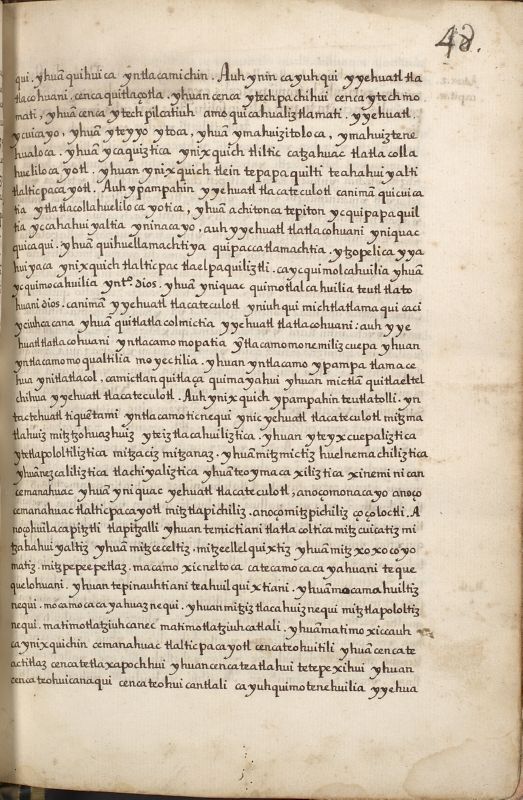 48.
qui. yhuā quihuica yntlacamichin. Auh ynin cayuhqui yyehuatl tla
tlacohuani. cenca quitlaçotla. yhuan cenca ytechpachihui cenca ytech mo
mati, yhuā cenca ytech pilcatiuh amo qui cahualiztlamati. yyehuatl.
ycuicayo, yhuā yteyyo ytoca, yhuā ymahuizitoloca, ymahuiztene
hualoca. yhuā ycaquiztica ynixquich tliltic catzahuac tlatlacolla
hueliloca yotl. yhuan ynixquich tlein tepapaquilti teahahuiyalti
tlalticpacayotl. Auh ypampahin yyehuatl tlacateculotl canimā quicuica
tia ytlatlacollahuelilocayotica, yhuā achitonca tepiton ycquipapaquil
tia yccahahuiyaltia yninacayo, auh yyehuatl tlatlacohuani yniquac
quicaqui. yhuā quihuellamachtiya quipaccatlamachtia. ytzopelica yya
huiyaca ynixquich tlalticpac tlaelpaquiliztli. caycquimolcahuilia yhuā
ycquimocahuilia ynto dios. yhuā yniquac quimotlalcahuilia teutl tlato
huani dios. canimā yyehuatl tlacateculotl yniuhqui michtlatlama qui caci
yciuhcacana yhuā quitlatlacolmictia yyehuatl tlatlacohuani: auh yye
huatl tlatlacohuani yntlacamomopatia yntlacamomonemilizcuepa yhuan
yntlacamomoqualtilia moyectilia. yhuan yntlacamo ypampa tlamace
hua ynitlatlacol. camictlan quitlaça quimayahui yhuan mictlā quitlaeltel
chihua yyehuatl tlacateculotl. Auh ynixquich ypampahin teutlatolli. yn
tactehuatl tiquetami yntlacamoticnequi ynic yehuatl tlacateculotl mitzma
tlahuiz mitztzohuazhuiz yteiztlacahuiliztica. yhuan yteyxcuepaliztica
ytetlapololtiliztica mitzaciz mitzanaz. yhuā mitzmictiz huelnemachiliztica
yhuā nezcaliliztica tlachiyaliztica yhuā teoymacaxiliztica xinemi nican
cemanahuac yhuā yniquac yehuatl tlacateculotl, anoçomonacayo anoço
cemanahuac tlalticpacayotl mitztlapichiliz. anoço mitzpichiliz çoçoloctli. A
noçohuilacapitztli tlapitzalli yhuan temictiani tlatlacoltica mitzcuicatiz mi
tzahahuiyaltiz yhuā mitzceceltiz. mitzeellelquixtiz yhuā mitzxoxocoyo
matiz. mitzpepeepetlaz. macamo xicneltoca catecamocacayahuani teque
quelohuani. yhuan tepinauhtiani teahuilquixtiani. yhuā mocamahuiltiz
nequi. mocamocacayahuaz nequi. yhuan mitziztlacahuiznequi mitztlapololtiz
nequi. matimotlatziuhcanec matimotlatziuhcatlali. yhuā matimoxiccauh
caynixquichin cemanahuac tlalticpacayotl cencateohuitili yhuā cencate
actitlaz cencatetlaxapochhui yhuancencateatlahui tetepexihui yhuan
cencateohuicanaqui cencateohuicantlali cayuhquimotenehuilia yyehua